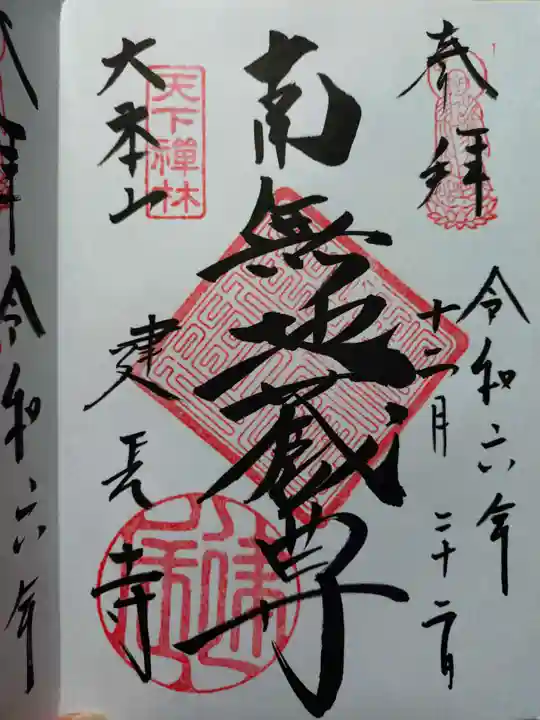 奉拝
令和六年
十二月二十二日
南無地蔵尊
天下禅林
大本山
建長寺
令和六年